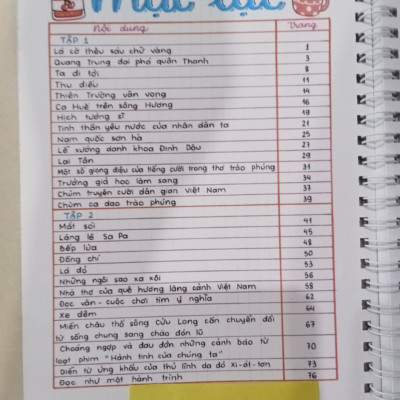 Mục lục
Nội dung Trang
TẬP 1
Lá cờ thêu sáu chữ vàng 1
Quang Trung đại phá quân Thanh 3
Ta đi tới 8
Thu điếu 11
Thiên Trường vãn vọng 14
Ca Huế trên sông Hương 16
Hịch tướng sĩ 19
Tinh thần yêu nước của nhân dân ta 21
Nam quốc sơn hà 25
Lễ xướng danh khoa Đinh Dậu 27
Lai Tân 29
Một số giọng điệu của tiếng cười trong thơ trào phúng 31
Trưởng giả học làm sang 34
Chùm truyện cười dân gian Việt Nam 37
Chùm ca dao trào phúng 39
TẬP 2
Mắt sói 41
Lặng lẽ Sa Pa 45
Bếp lửa 48
Đồng chí 50
Lá đỏ 53
Những ngôi sao xa xôi 56
Nhà thơ của quê hương làng cảnh Việt Nam 58
Đọc văn - cuộc chơi tìm ý nghĩa 62
Xe đêm 64
Miền châu thổ sông Cửu Long cần chuyển đổi
từ sống chung sang chào đón lũ 67
Choáng ngợp và đau đớn những cảnh báo từ
loạt phim "Hành tinh của chúng ta" 70
Diễn từ ứng khẩu của thủ lĩnh da đỏ Xi-át-tơn 73
Đọc như một hành trình 76